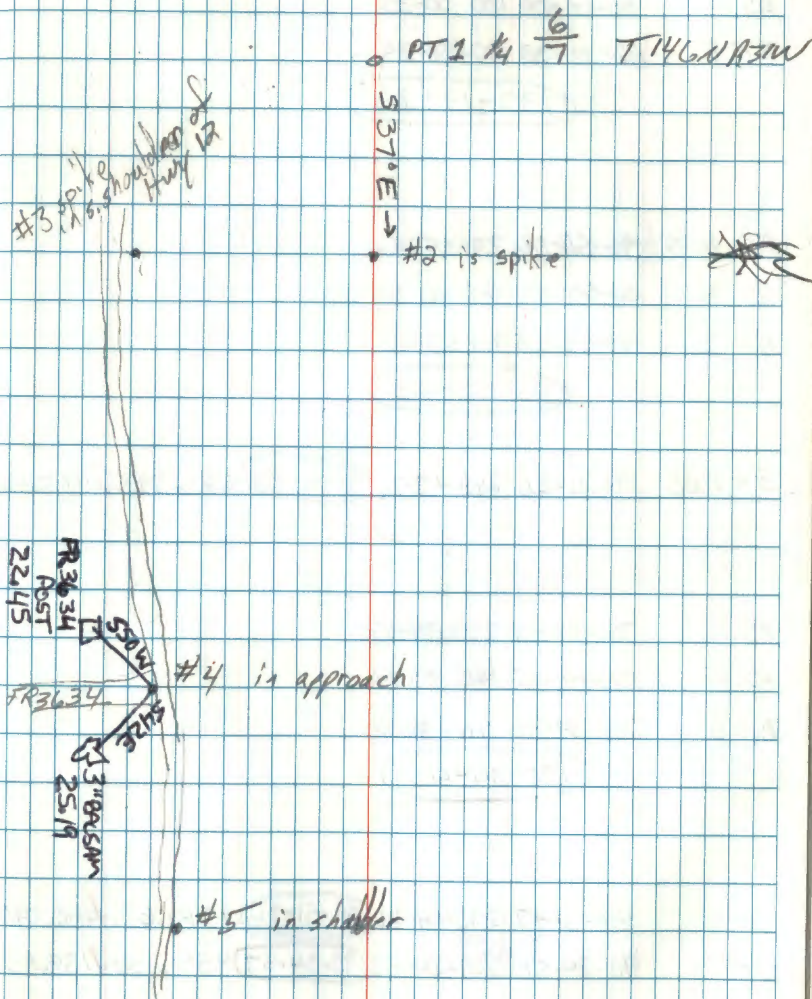 PT 1 1/4 6/7 T146N R31W
S37°E →
#3 spike
in s. shoulder of
Hwy 12
#2 is spike
FR3634
POST
22.45
S50W
#4 in approach
FR3634
S42E
3" BALSAM
25.19
#5 in